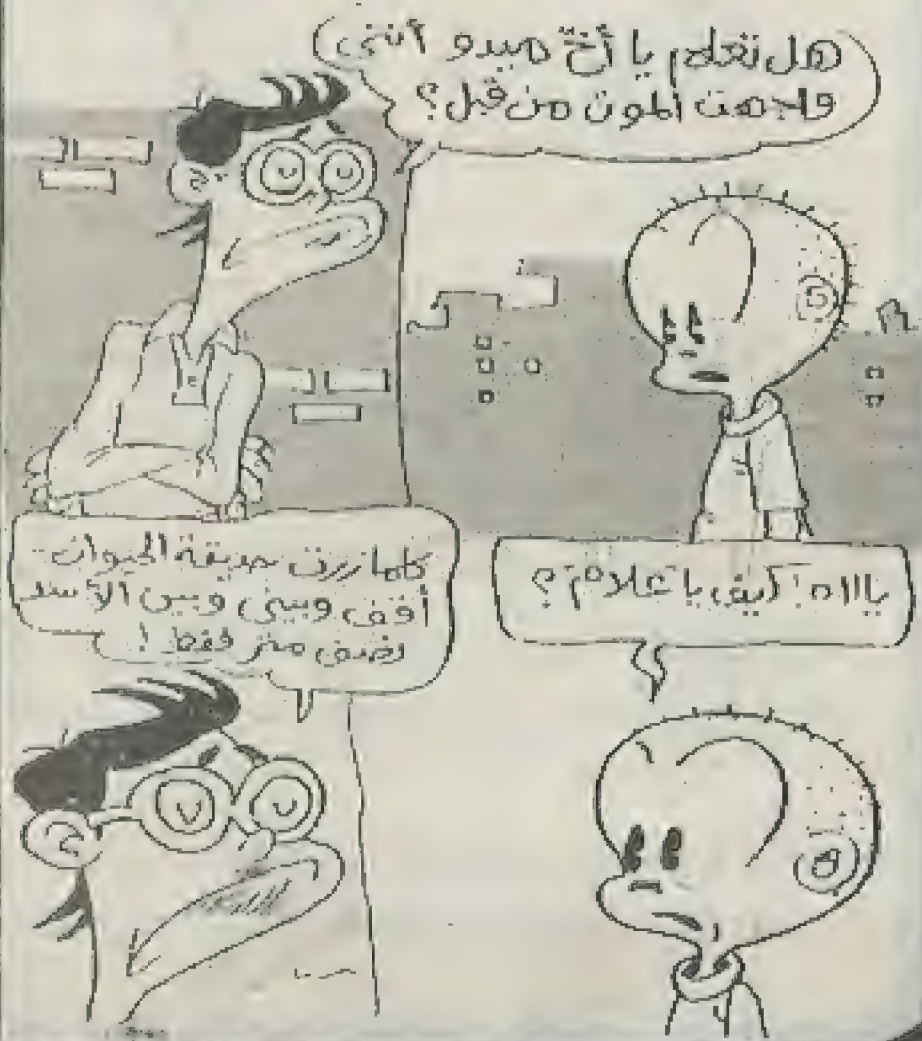 هل تعلم يا أخ ميدو أنني
واجهت الموت من قبل؟
يااااه! كيف يا علام؟
كلما زرت حديقة الحيوان
أقف وبيني وبين الأسد
نصف متر فقط!